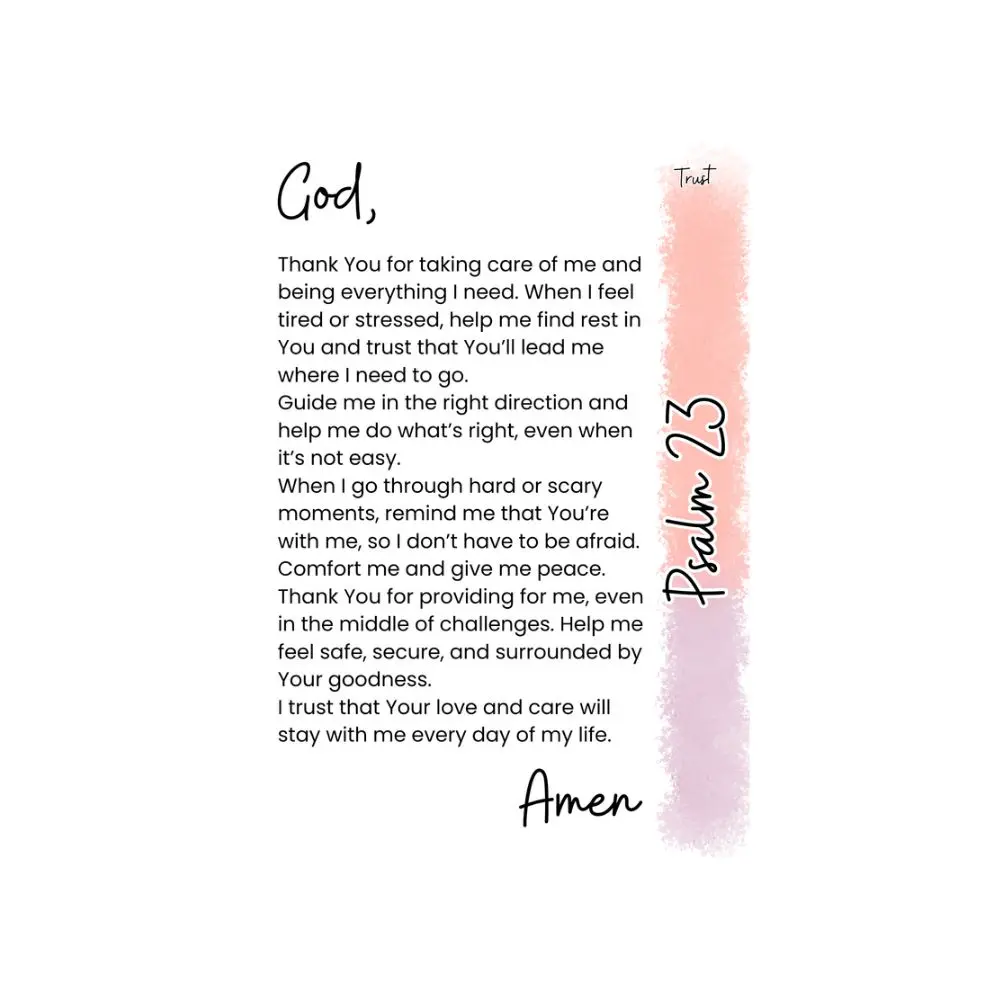 God,
Thank You for taking care of me and
being everything I need. When I feel
tired or stressed, help me find rest in
You and trust that You’ll lead me
where I need to go.
Guide me in the right direction and
help me do what’s right, even when
it’s not easy.
When I go through hard or scary
moments, remind me that You’re
with me, so I don’t have to be afraid.
Comfort me and give me peace.
Thank You for providing for me, even
in the middle of challenges. Help me
feel safe, secure, and surrounded by
Your goodness.
I trust that Your love and care will
stay with me every day of my life.
Amen
Trust
Psalm 23